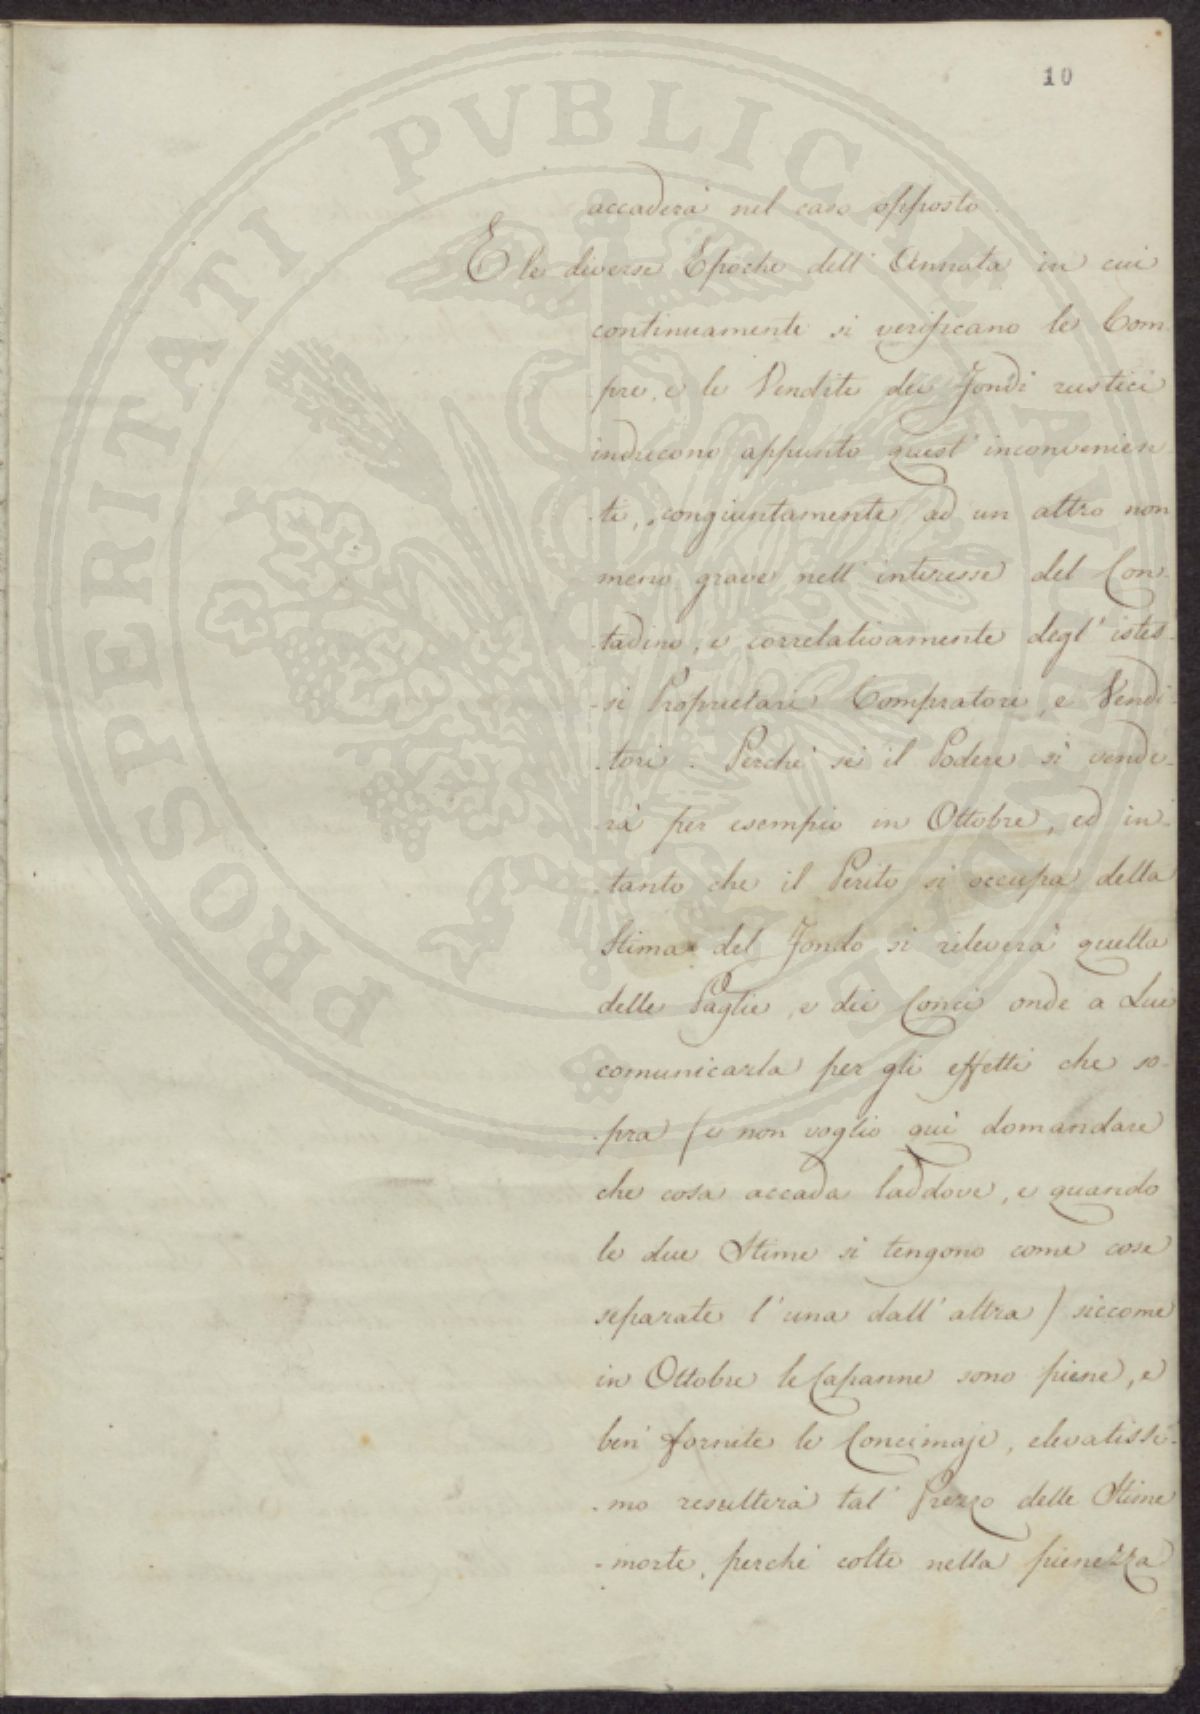 10
accaderà nel caso opposto.
E le diverse Epoche dell' Annata in cui
continuamente si verificano le Com-
pre, e le Vendite dei Fondi rustici
inducono appunto quest' inconvenien
-te, congiuntamente ad un altro non
meno grave nell' interesse del Con-
-tadino, e correlativamente degl' istes-
-si Proprietari Compratori, e Vendi-
-tori. Perchè se il Podere si vende-
-rà per esempio in Ottobre, ed in-
-tanto che il Perito si occupa della
Stima del Fondo si rileverà quella
delle Paglie, e dei Conci onde a Lui
comunicarla per gli effetti che so-
-pra (e non voglio qui domandare
che cosa accada laddove, e quando
le due Stime si tengono come cose
separate l' una dall' altra) siccome
in Ottobre le Capanne sono piene, e
ben' fornite le Concimaje, elevatissi-
-mo resulterà tal' Prezzo delle Stime
-morte, perchè colte nella pienezza
PROSPERITATI PVBLICAE AVGENDAE